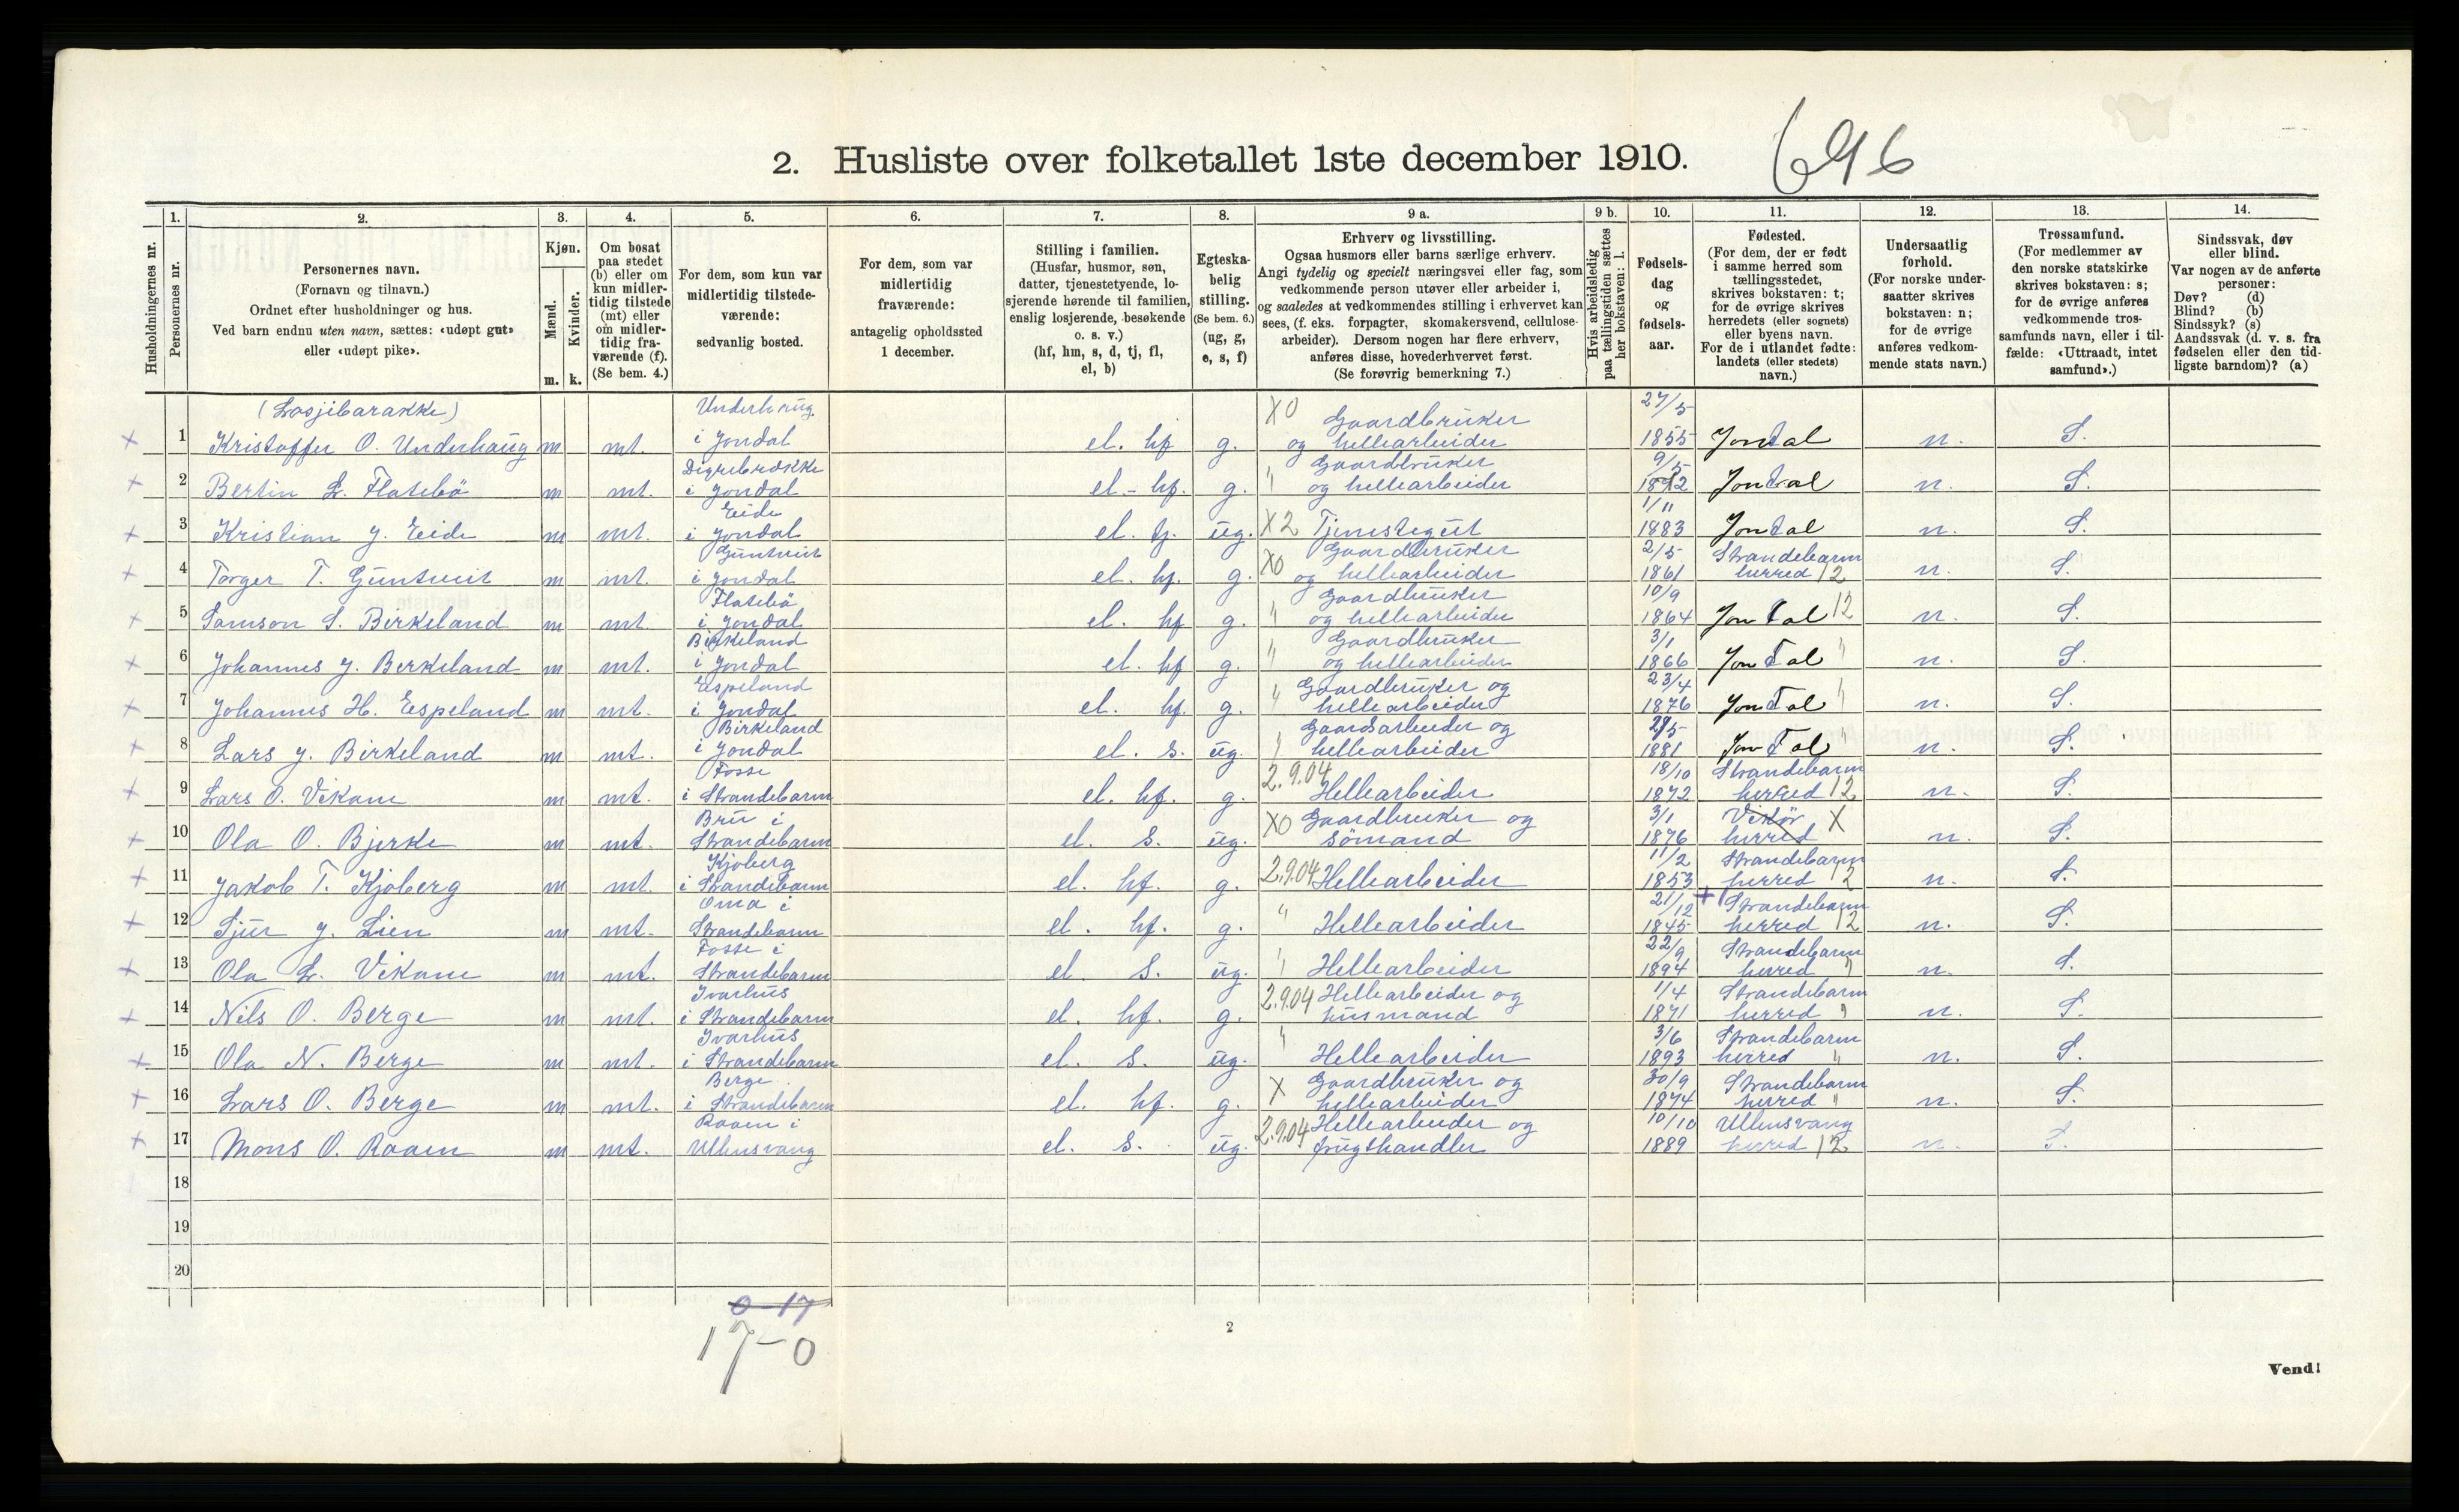 2. Husliste over folketallet 1ste december 1910. 696
Husholdningernes nr.
1. Personernes nr.
2. Personernes navn. (Fornavn og tilnavn.) Ordnet efter husholdninger og hus. Ved barn endnu uten navn, sættes: «udøpt gut» eller «udøpt pike».
3. Kjøn. Mænd. m. Kvinder. k.
4. Om bosat paa stedet (b) eller om kun midlertidig tilstede (mt) eller om midlertidig fraværende (f). (Se bem. 4.)
5. For dem, som kun var midlertidig tilstedeværende: sedvanlig bosted.
6. For dem, som var midlertidig fraværende: antagelig opholdssted 1 december.
7. Stilling i familien. (Husfar, husmor, søn, datter, tjenestetyende, losjerende hørende til familien, enslig losjerende, besøkende o. s. v.) (hf, hm, s, d, tj, fl, el, b)
8. Egteskabelig stilling. (Se bem. 6.) (ug, g, e, s, f)
9 a. Erhverv og livsstilling. Ogsaa husmors eller barns særlige erhverv. Angi tydelig og specielt næringsvei eller fag, som vedkommende person utøver eller arbeider i, og saaledes at vedkommendes stilling i erhvervet kan sees, (f. eks. forpagter, skomakersvend, cellulosearbeider). Dersom nogen har flere erhverv, anføres disse, hovederhvervet først. (Se forøvrig bemerkning 7.)
9 b. Hvis arbeidsledig paa tællingstiden sættes her bokstaven: l.
10. Fødselsdag og fødselsaar.
11. Fødested. (For dem, der er født i samme herred som tællingsstedet, skrives bokstaven: t; for de øvrige skrives herredets (eller sognets) eller byens navn. For de i utlandet fødte: landets (eller stedets) navn.)
12. Undersaatlig forhold. (For norske undersaatter skrives bokstaven: n; for de øvrige anføres vedkommende stats navn.)
13. Trossamfund. (For medlemmer av den norske statskirke skrives bokstaven: s; for de øvrige anføres vedkommende trossamfunds navn, eller i tilfælde: «Uttraadt, intet samfund».)
14. Sindssvak, døv eller blind. Var nogen av de anførte personer: Døv? (d) Blind? (b) Sindssyk? (s) Aandssvak (d. v. s. fra fødselen eller den tidligste barndom)? (a)
(Losjibarakke)
x 1 Kristoffer O. Underhaug m mt. Underhaug i Jondal el. hf g. X0 Gaardbruker og hellearbeider 27/5 1855 Jondal n. S.
x 2 Bertin L. Flatebö m mt. Digrebrække i Jondal el. hf. g. " Gaardbruker og hellearbeider 9/5 1872 Jondal n. S.
x 3 Kristian J. Eide m mt. Eide i Jondal el. tj. ug. X2 Tjenestegut 1/11 1883 Jondal n. S.
x 4 Torger T. Guntveit m mt. Guntveit i Jondal el. hf. g. X0 Gaardbruker og hellearbeider 2/5 1861 Strandebarm herred 12 n. S.
x 5 Samson S. Birkeland m mt. Flatebö i Jondal el. hf g. " Gaardbruker og hellearbeider 10/9 1864 Jondal 12 n. S.
x 6 Johannes J. Berkeland m mt. Birkeland i Jondal el. hf g. " Gaardbruker og hellearbeider 3/1 1866 Jondal " n. S.
x 7 Johannes H. Espeland m mt. Espeland i Jondal el. hf. g. " Gaardbruker og hellearbeider 23/4 1876 Jondal " n. S.
x 8 Lars J. Birkeland m mt. Birkeland i Jondal el. s. ug. " Gaardsarbeider og hellearbeider 1881 Jondal " n. S.
x 9 Lars O. Vikane m mt. Fosse i Strandebarm el. hf. g. 2.9.04 Hellearbeider 18/10 1872 Strandebarm herred 12 n. S.
x 10 Ola O. Bjerke m mt. Bru i Strandebarm el. s. ug. X0 Gaardbruker og sömand 3/1 1876 Vikør herred X n. S.
x 11 Jakob T. Kjoberg m mt. Kjoberg i Strandebarm el. hf. g. 2.9.04 Hellearbeider 11/2 1853 Strandebarm herred 12 n. S.
x 12 Sjur J. Lien m mt. Oma i Strandebarm el. hf. g. " Hellearbeider 21/12 1845 + Strandebarm herred 12 n. S.
x 13 Ola L. Vikane m mt. Fosse i Strandebarm el. s. ug. " Hellearbeider 22/9 1894 Strandebarm herred " n. S.
x 14 Nils O. Berge m mt. Ivarhus i Strandebarm el. hf. g. 2.9.04 Hellearbeider og husmand 1/4 1871 Strandebarm herred " n. S.
x 15 Ola N. Berge m mt. Ivarhus i Strandebarm el. s. ug. " Hellearbeider 3/6 1893 Strandebarm herred " n. S.
x 16 Lars O. Berge m mt. Berge i Strandebarm el. hf. g. X Gaardbruker og hellearbeider 30/9 1874 Strandebarm herred " n. S.
x 17 Mons O. Raaen m mt. Raaen i Ullensvang el. s. ug. 2.9.04 Hellearbeider og frugthandler 10/10 1889 Ullensvang herred 12 n. S.
18
19
20
0-17
17-0
2
Vend!